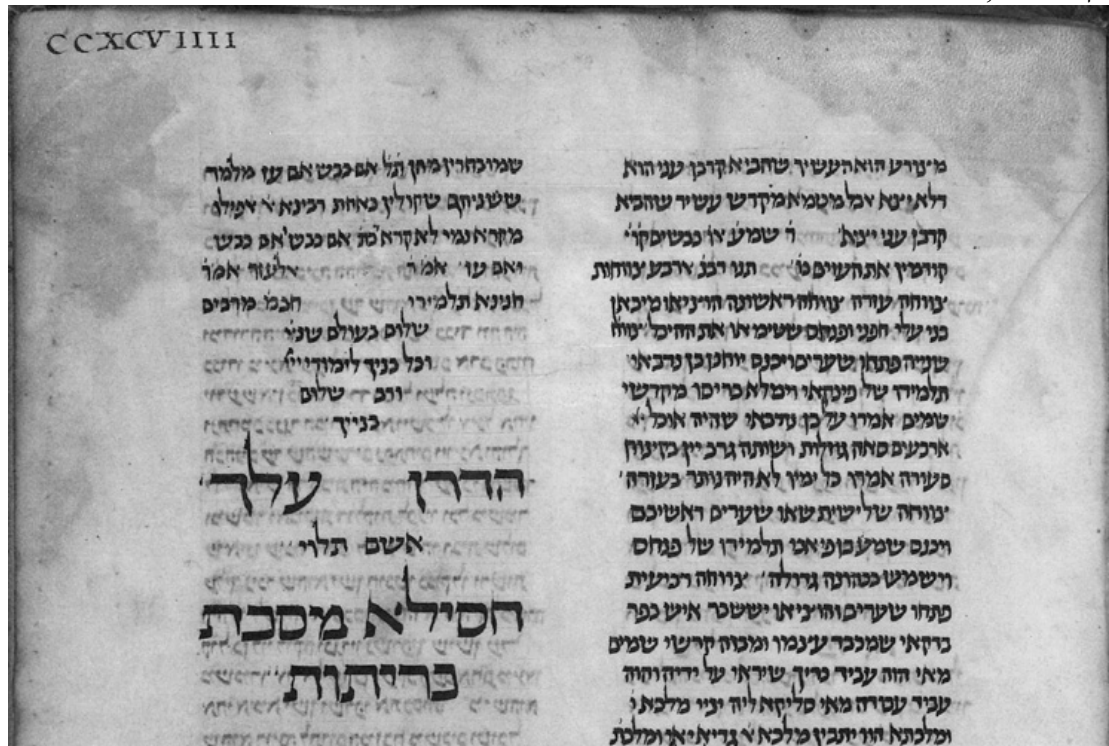 CCXCVIIII
מצורע הוא העשיר שהביא קרבן עני הוא
דלא ייצא אבל מטמא מקדש עשיר שהביא
קרבן עני ייצא ר' שמע' או' כבשים קו'
קודמין את העזים כו' תנו רבנ ארבע צווחות
צווחה עזרה צווחה ראשונה הוציאו מיכאן
בני עלי חפני ופנחס שטימאו את ההיכל צווח'
שנייה פתחו שערים ויכנס יוחנן בן נדבאי
תלמידו של פינקאי וימלא כריסו מקדשי
שמים אמרו על בן נדבאי שהיה אוכל
ארבעים סאה גוזלות ושותה גרב יין בקינוח
סעודה אמרו כל ימיו לא היה נותר בעזרה
צווחה שלישית שאו שערים ראשיכם
ויכנס תלמידו של פנחס
וישמש בכהונה גדולה צווחה רביעית
פתחו שערים והוציאו יששכר איש כפר
ברקאי שמכבד עצמו ומבזה קדשי שמים
מאי הוה עביד כריך שיראי על ידיה והוה
עביד עבודה מאי סליקא ליה ינאי מלכא
ומלכתא הוו יתבין מלכא א' גדיא יאי ומלכת'
אם כבש אם עז מלמד
ששניהם שקולין כאחת רבינא א' אפילו
מקרא נמי לא קרא אם כבש אם כבש
ואם עז אמר אלעזר אמר
חנינא תלמידי חכמ' מרבים
שלום בעולם שנ'
וכל בניך לימודי ייי
ורב שלום
בנייך
הדרן עלך
אשם תלוי
חסילא מסכת
כריתות